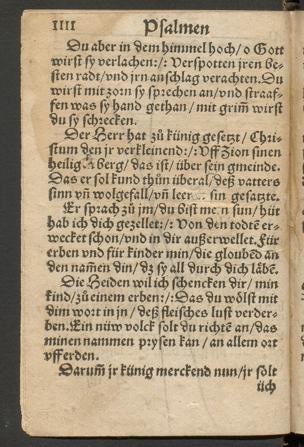 IIII Psalmen
Du aber in dem himmel hoch/ o Gott
wirst sy verlachen:/: Verspotten jren be-
sten radt/vnd jrn anschlag verachten. Du
wirst mit zorn sy sprechen an/vnd straaf-
fen was sy hand gethan/ mit grim̃ wirst
du sy schrecken.
Der Herr hat zů künig gesetzt/ Chri-
stum den jr verkleinend:/: Vff Zion sinen
heilig berg/ das ist/ über sein gmeinde.
Das er sol kund thůn überal/ deß vatters
sinn vñ wolgefall/vñ leer sin gesatzte.
Er sprach zů jm/ du bist min sun/ hüt
hab ich dich gezellet:/: Von den todtē er-
wecket schon/vnd in dir außerwellet. Für
erben vnd für kinder min/die gloubēd an
den nam̃en din/ dz sy all durch dich läbē.
Die Heiden wil ich schencken dir/ min
kind/zů einem erben:/: Das du wölst mit
dim wort in jn/ deß fleisches lust verder-
ben. Ein nüw volck solt du richtē an/das
minen nammen prysen kan/ an allem ort
vff erden.
Darum̃ jr künig merckend nun/jr solt
üch